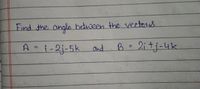 Find the angle between the vectors
A = i-2j-5k and B = 2i+j-4k